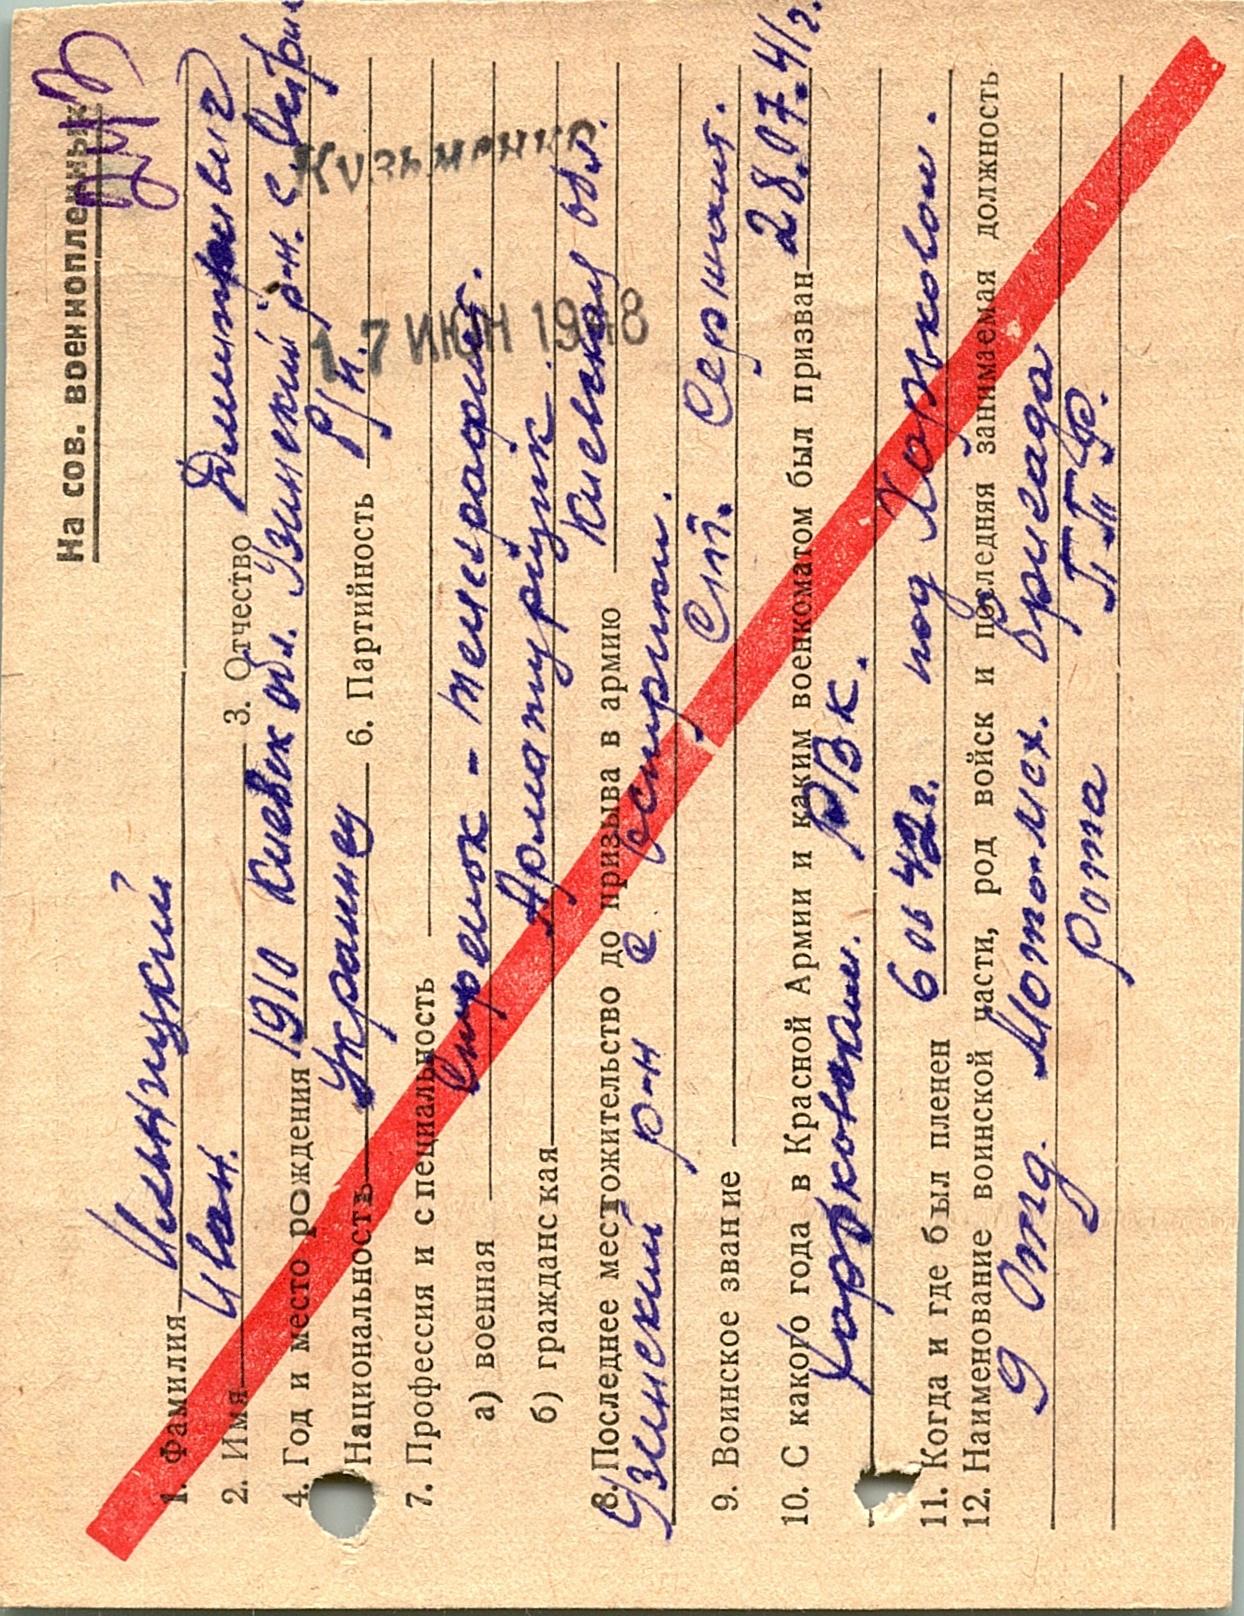 На сов. военнопленных
1. Фамилия Ильницкий
2. Имя Иван. 3. Отчество Дмитриевич
4. Год и место рождения 1910 Киевск обл. Узинский р-н. с.
Национальность Украинец 6. Партийность б/п.
Кузьменко
17 ИЮН 1948
7. Профессия и специальность
а) военная Стрелок - телеграфист.
б) гражданская Арматурщик.
8. Последнее местожительство до призыва в армию Киевская обл.
Узинский р-н с.
9. Воинское звание Ст. Сержант.
10. С какого года в Красной Армии и каким военкоматом был призван 28.07.41г.
Харьковским. РВК.
11. Когда и где был пленен 6 06 42г. под Харьковом.
12. Наименование воинской части, род войск и последняя занимаемая должность
9 Отд. Мото-мех. бригада
рота